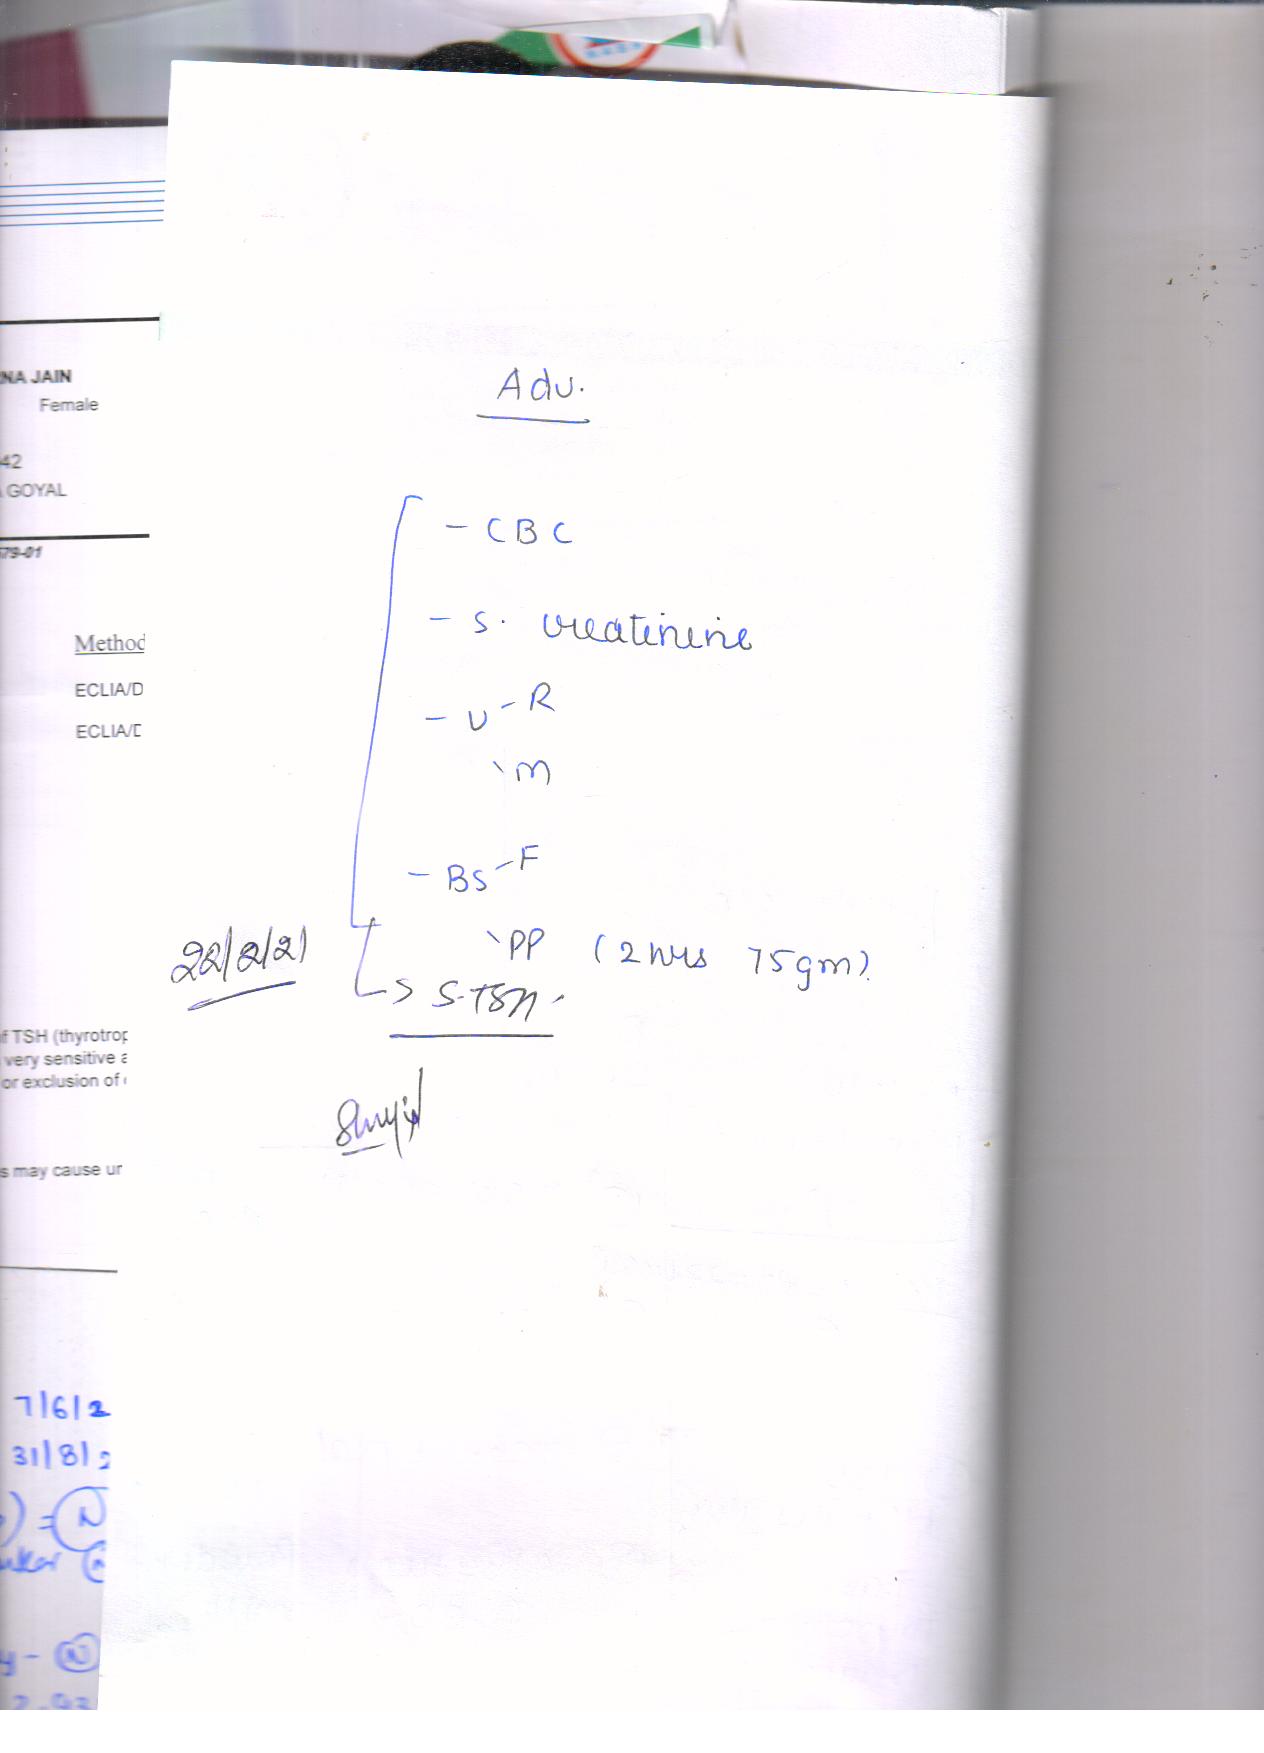 NA JAIN
Female
42
GOYAL
579-01
Method
ECLIA/D
ECLIA/D
f TSH (thyrotrop
very sensitive a
or exclusion of
s may cause ur
7/6/2
31/8/2
) = N
y - N
2.93
Adv.
- CBC
- S. creatinine
- U - R
\ M
- BS - F
\ PP (2 hrs 75gm).
22/2/21
→ S-TSH.